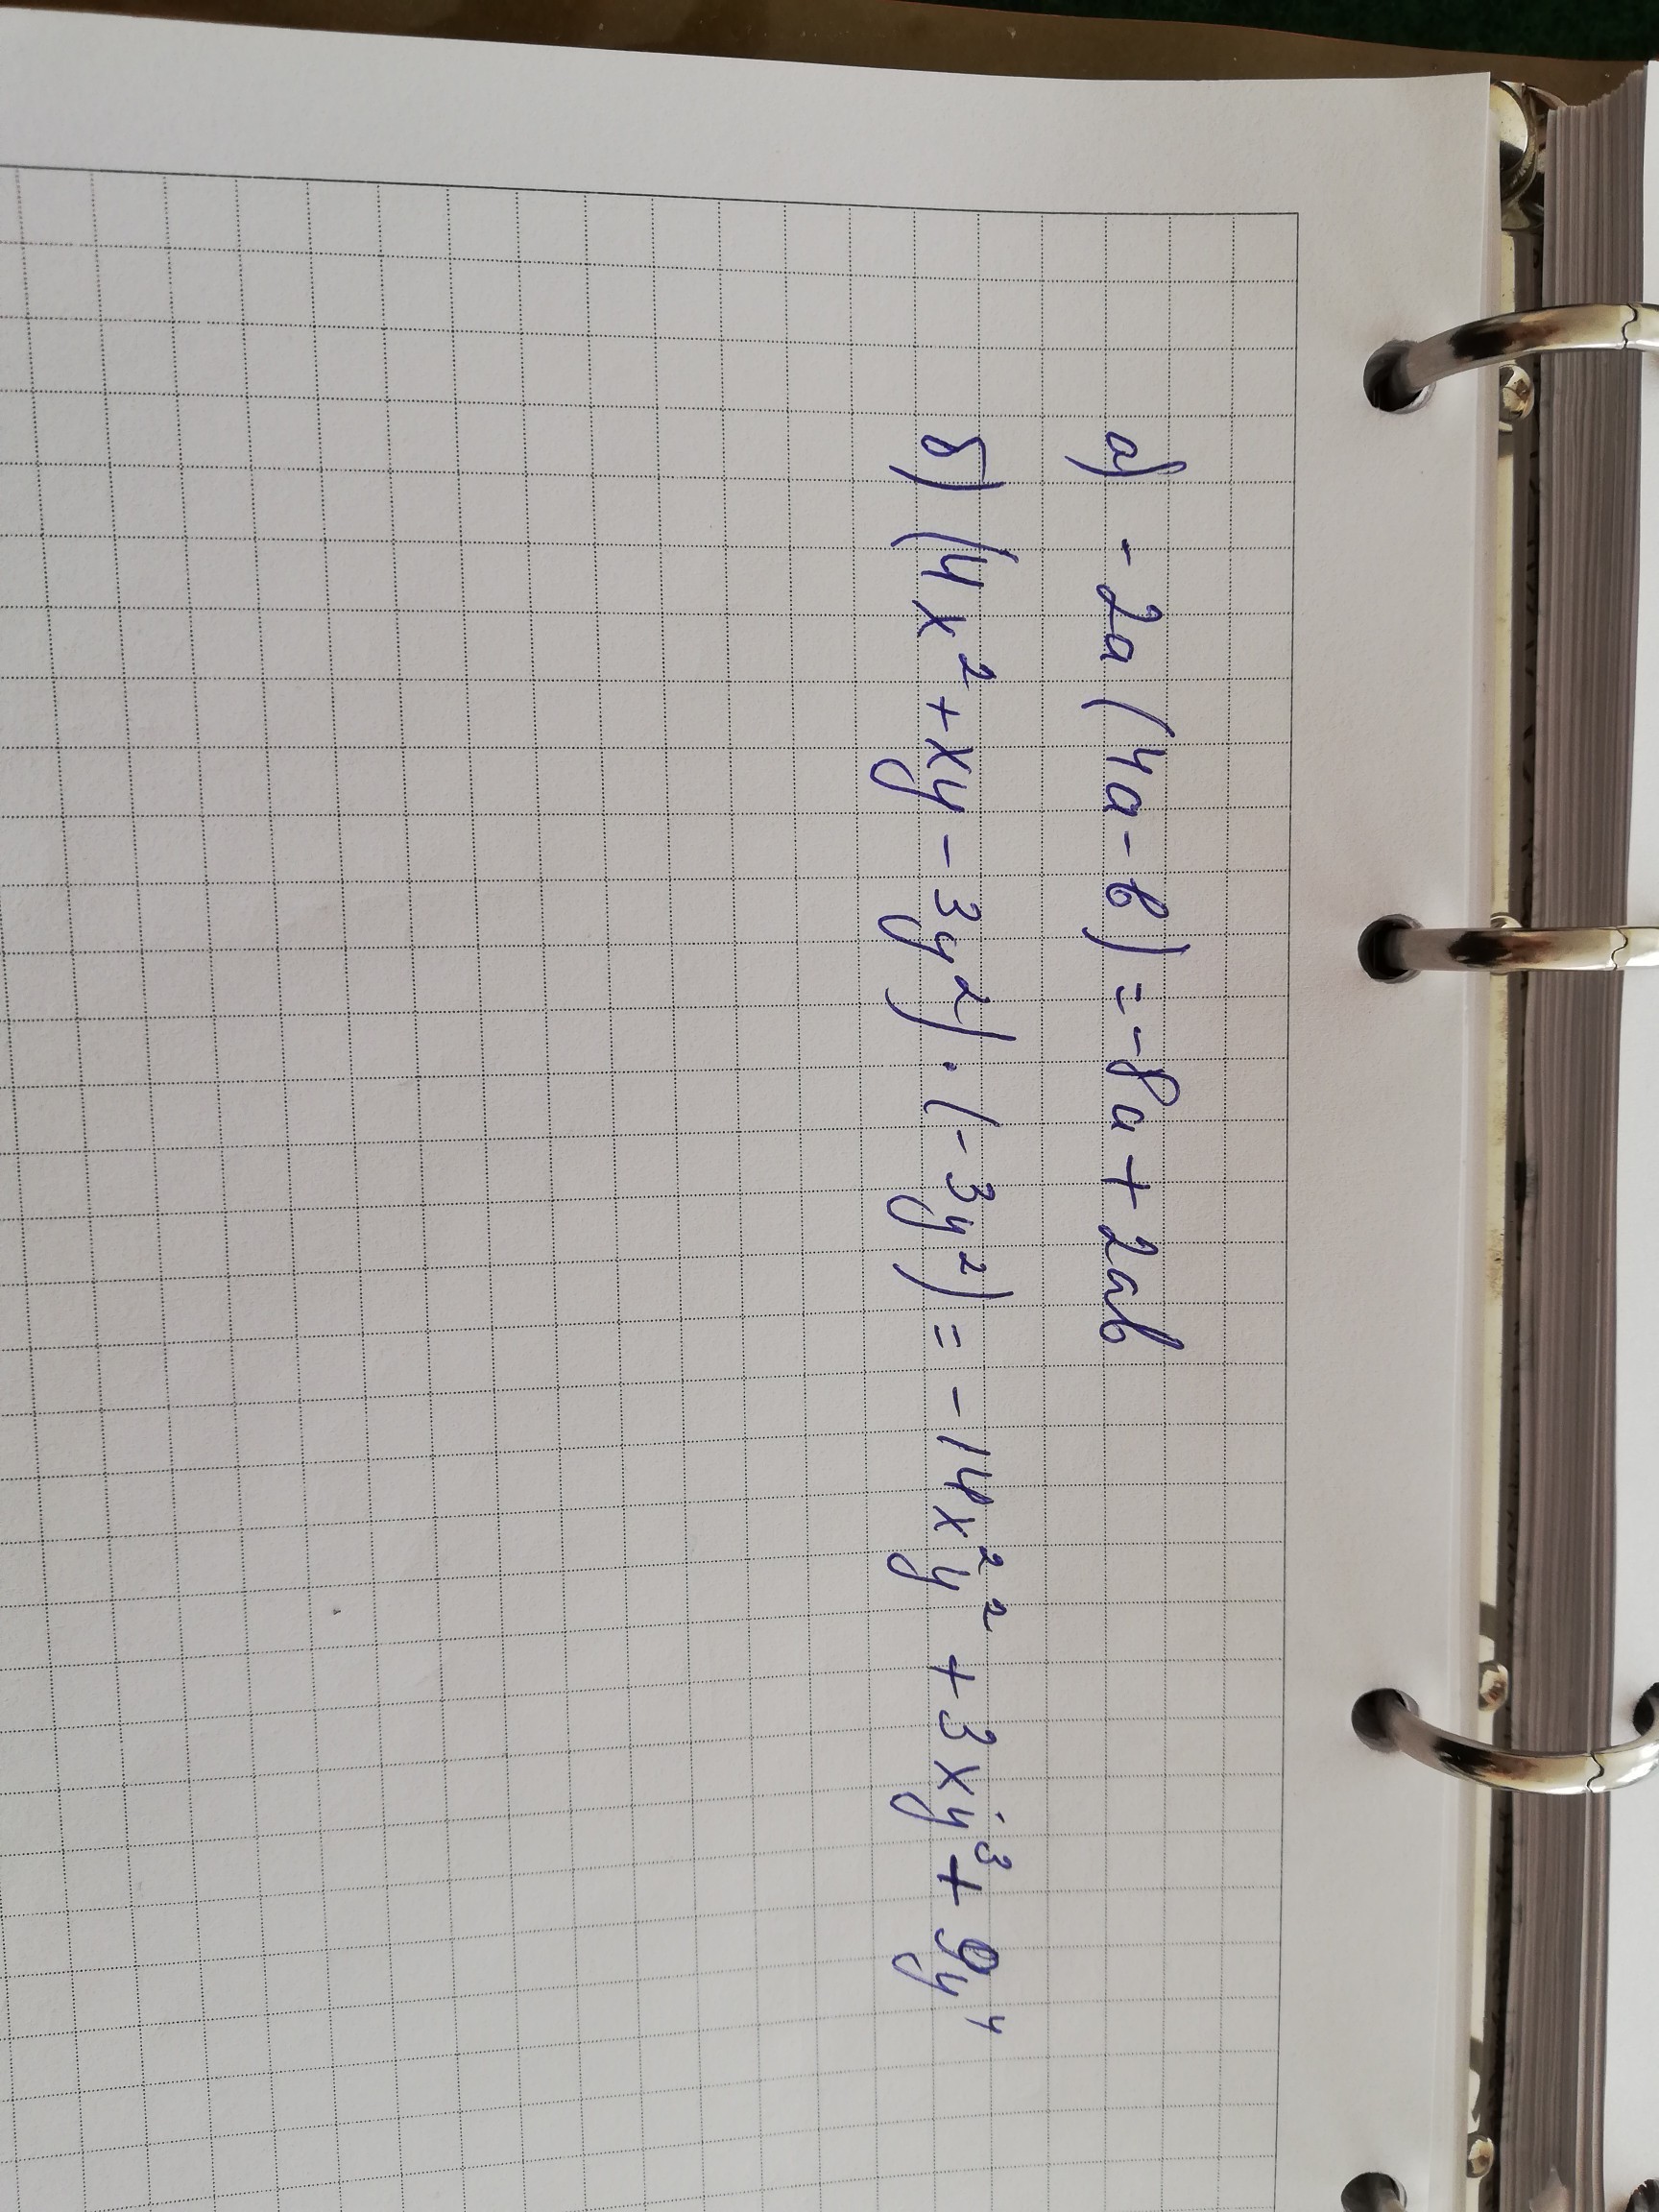 а) -2a(4a-b)=-8a+2ab
б) (4x²+xy-3y²)·(-3y²)=-14x²y²+3xy³+9y⁴